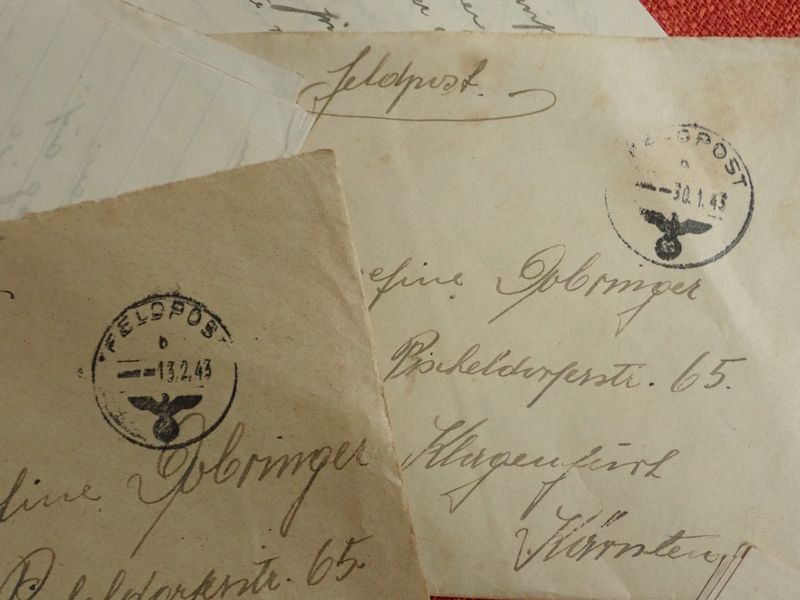 Feldpost.
FELDPOST
b
30.1.43
efine Dobringer
Pischeldorferstr. 65.
Klagenfurt
Kärnten
FELDPOST
b
13.2.43
fine Dobringer
Pischeldorferstr. 65.